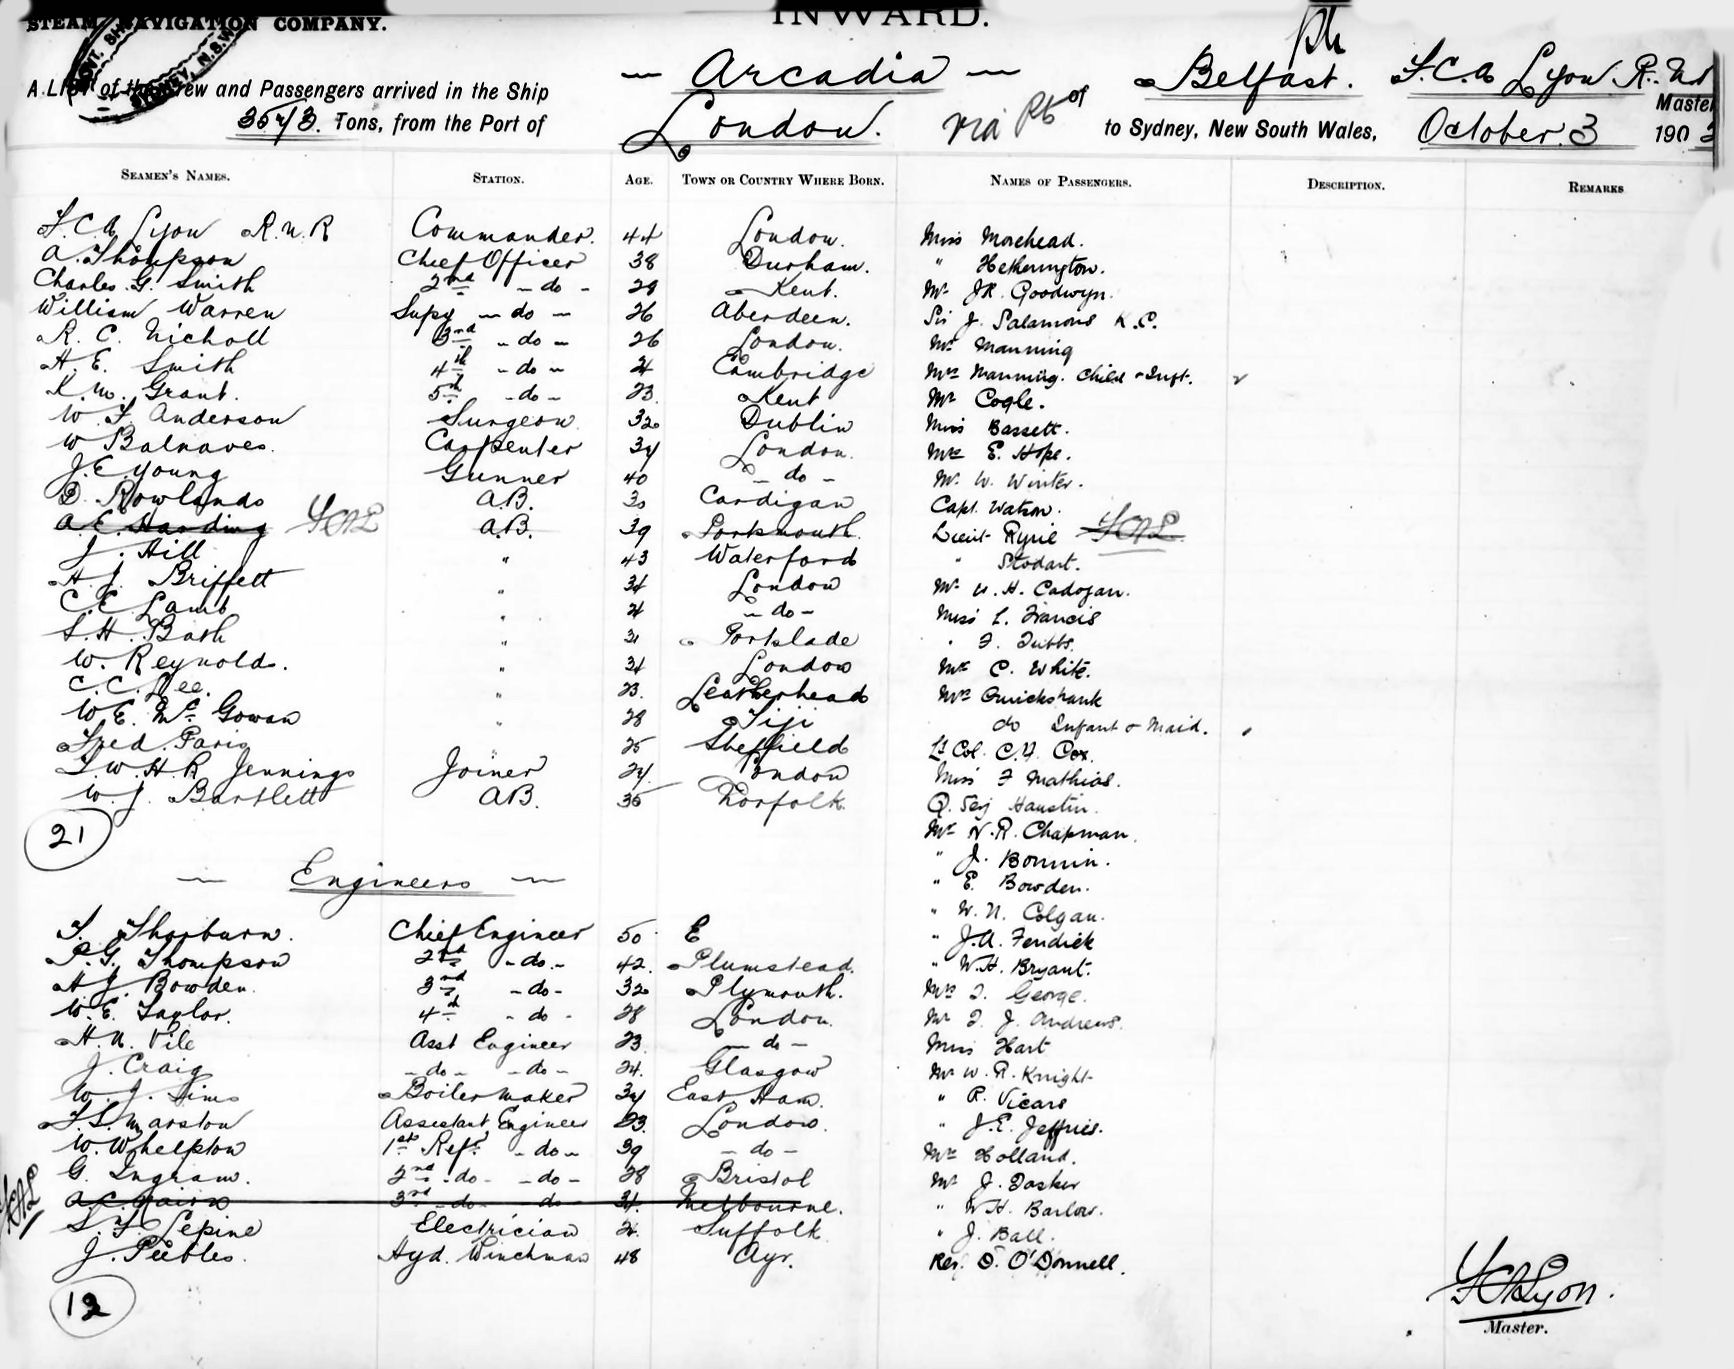 STEAM NAVIGATION COMPANY.
INWARD.
A LIST of the Crew and Passengers arrived in the Ship — Arcadia — of Belfast. F.C.A Lyon R.N.R Master
3573. Tons, from the Port of London. via Pts to Sydney, New South Wales, October 3 190
SEAMEN'S NAMES. STATION. AGE. TOWN OR COUNTRY WHERE BORN. NAMES OF PASSENGERS. DESCRIPTION. REMARKS
F.C.A Lyon R.N.R Commander. 44 London. Miss Morehead.
A. Thompson Chief Officer 38 Durham. " Hetherington.
Charles. G. Smith 2nd - do - 29 Kent. Mr J.R. Goodwyn.
William Warren Supy - do - 26 Aberdeen. Sir J. Salamons K.C.
R. C. Nicholl 3rd - do - 26 London. Mr Manning
H. E. Smith 4th - do - 24 Cambridge Mrs Manning. Child & Inft.
K. M. Grant. 5th - do - 23. Kent Mr Cogle.
W. F. Anderson Surgeon 32 Dublin Miss Bassett.
W Balnaves. Carpenter 34 London. Mrs E. Hope.
J. E. Young Gunner 40 - do - Mr W. Winter.
D. Rowlands A.B. 30 Cardigan Capt. Watson.
A. E. Harding FCAL A.B. 39 Portsmouth. Lieut- Ryrie FCAL
J. Hill " 43 Waterford " Stodart.
H. J. Briffett " 34 London Mr H. Cadogan.
C. E. Lamb " 24 - do - Miss L. Francis
S. H. Bath " 31 Portslade " F. Tubbs.
W. Reynolds. " 34 London Mr C. White.
C. C. Lee. " 23. Leatherhead Mrs Cruickshank
W. E. McGowan " 28 Fiji do Infant & Maid.
Fred. Paris " 25 Sheffield Lt Col. C.F. Cox.
F.W.H.R Jennings Joiner 24 London Miss F Mathias.
W. J. Bartlett A.B. 35 Norfolk Q. Serj Haustin.
21 Mr N.R. Chapman.
" J. Bonnin.
— Engineers — " E. Bowden.
" W. N. Colgan.
T. Thorburn. Chief Engineer 50 E " J.A. Fendick
P. G. Thompson 2nd - do - 42. Plumstead. " W.H. Bryant.
H J. Bowden. 3rd - do - 32 Plymouth. Mrs T. George.
W. E. Taylor. 4th - do - 28 London. Mr F. J. Andrews.
H. N. Vile Asst Engineer 23. - do - Miss Hart
J. Craig - do - - do - 24. Glasgow Mr W. R. Knight
W. J. Sims Boilermaker 34 East Ham. " R. Vicars
F. S. Marston Assistant Engineer 23. London. " J.E. Jeffries.
W. Whelpton 1st Refr. - do - 39 - do - Mrs Holland.
G. Ingram. 2nd - do - - do - 28 Bristol Mr J. Dasker
FCAL 3rd - do - - do - 31. Melbourne. " W.H. Barlow.
S. F. Lepine Electrician 24. Suffolk. " J. Ball.
J. Peebles. Hyd. Winchman 48 Ayr. Rev. D. O'Donnell.
12
FCALyon.
Master.